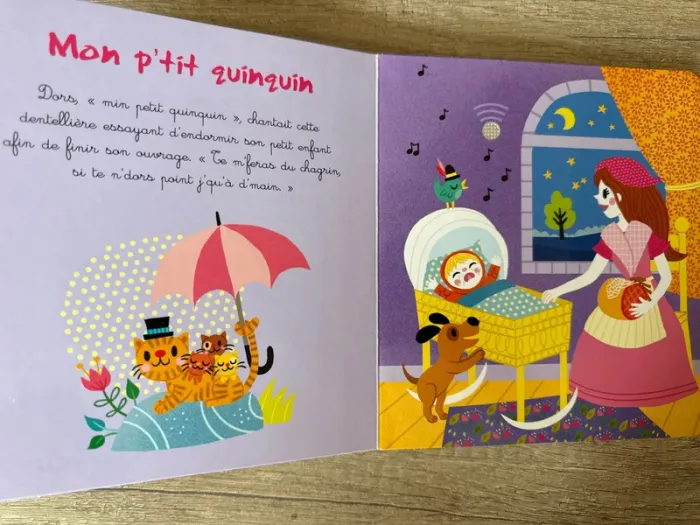 Mon p'tit quinquin
Dors, « min petit quinquin », chantait cette
dentellière essayant d'endormir son petit enfant
afin de finir son ouvrage. « Te m'feras du chagrin,
si te n'dors point j'qu'à d'main. »